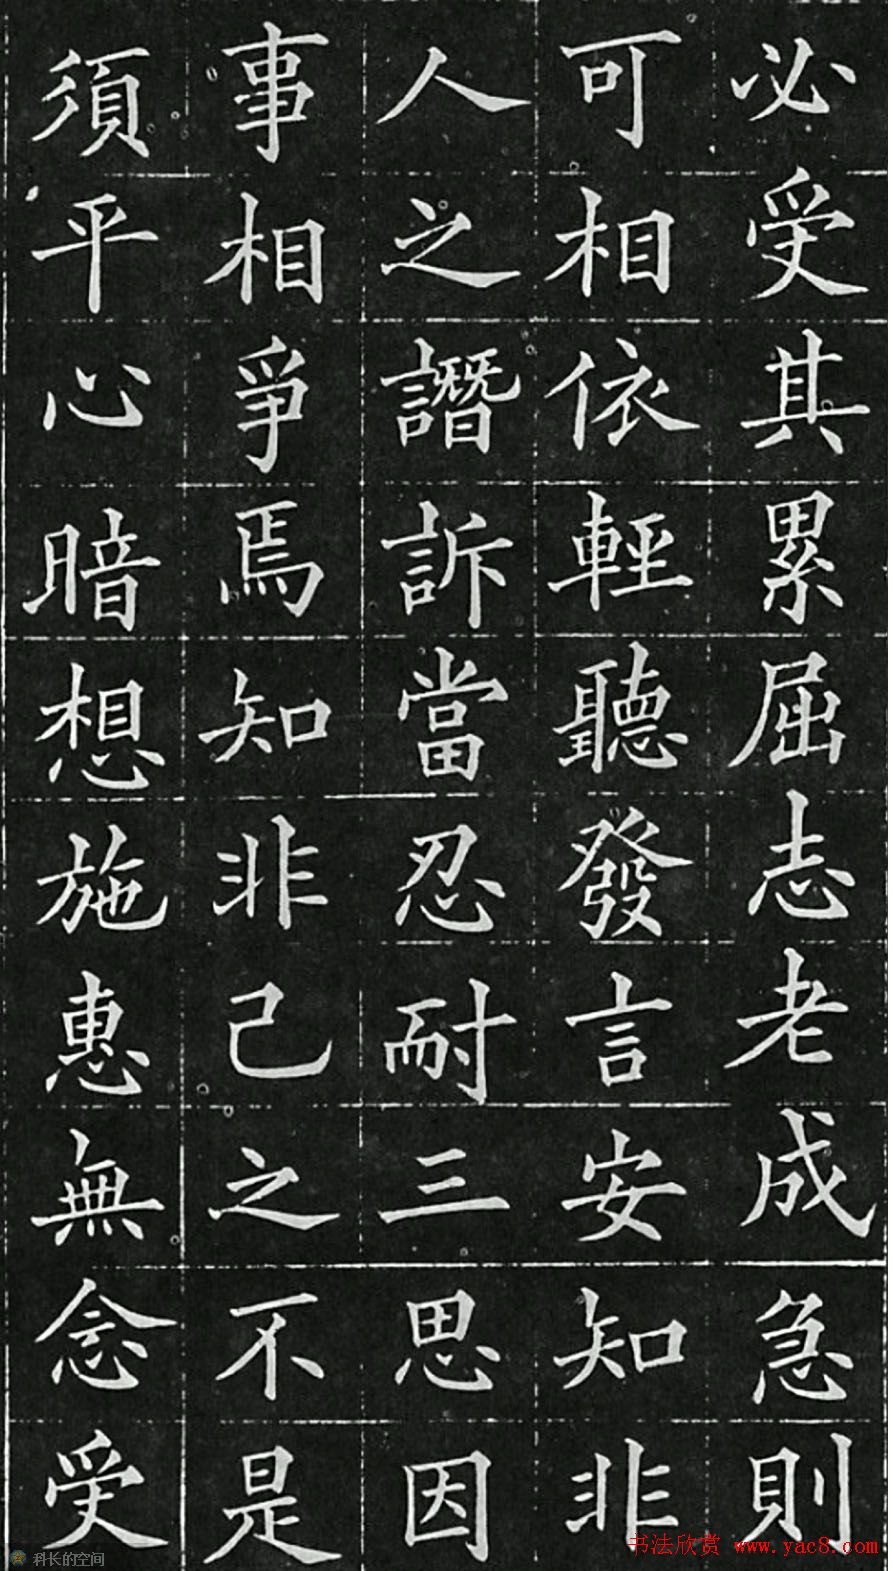 必受其累屈志老成急則
可相依輕聽發言安知非
人之譖訴當忍耐三思因
事相爭焉知非己之不是
須平心暗想施惠無念受
书法欣赏 www.yac8.com
科长的空间